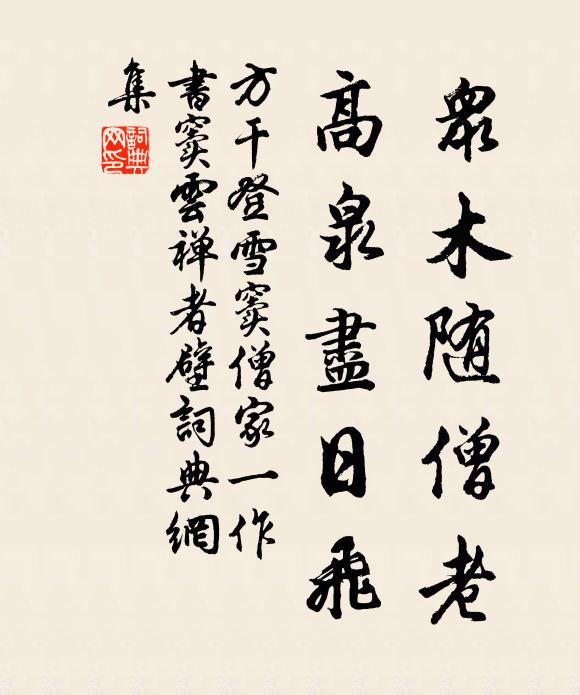 眾木随僧老
高泉盡日飛
方干登雪竇僧家一作
書竇雲禅者壁詞典網
集
詞典網印